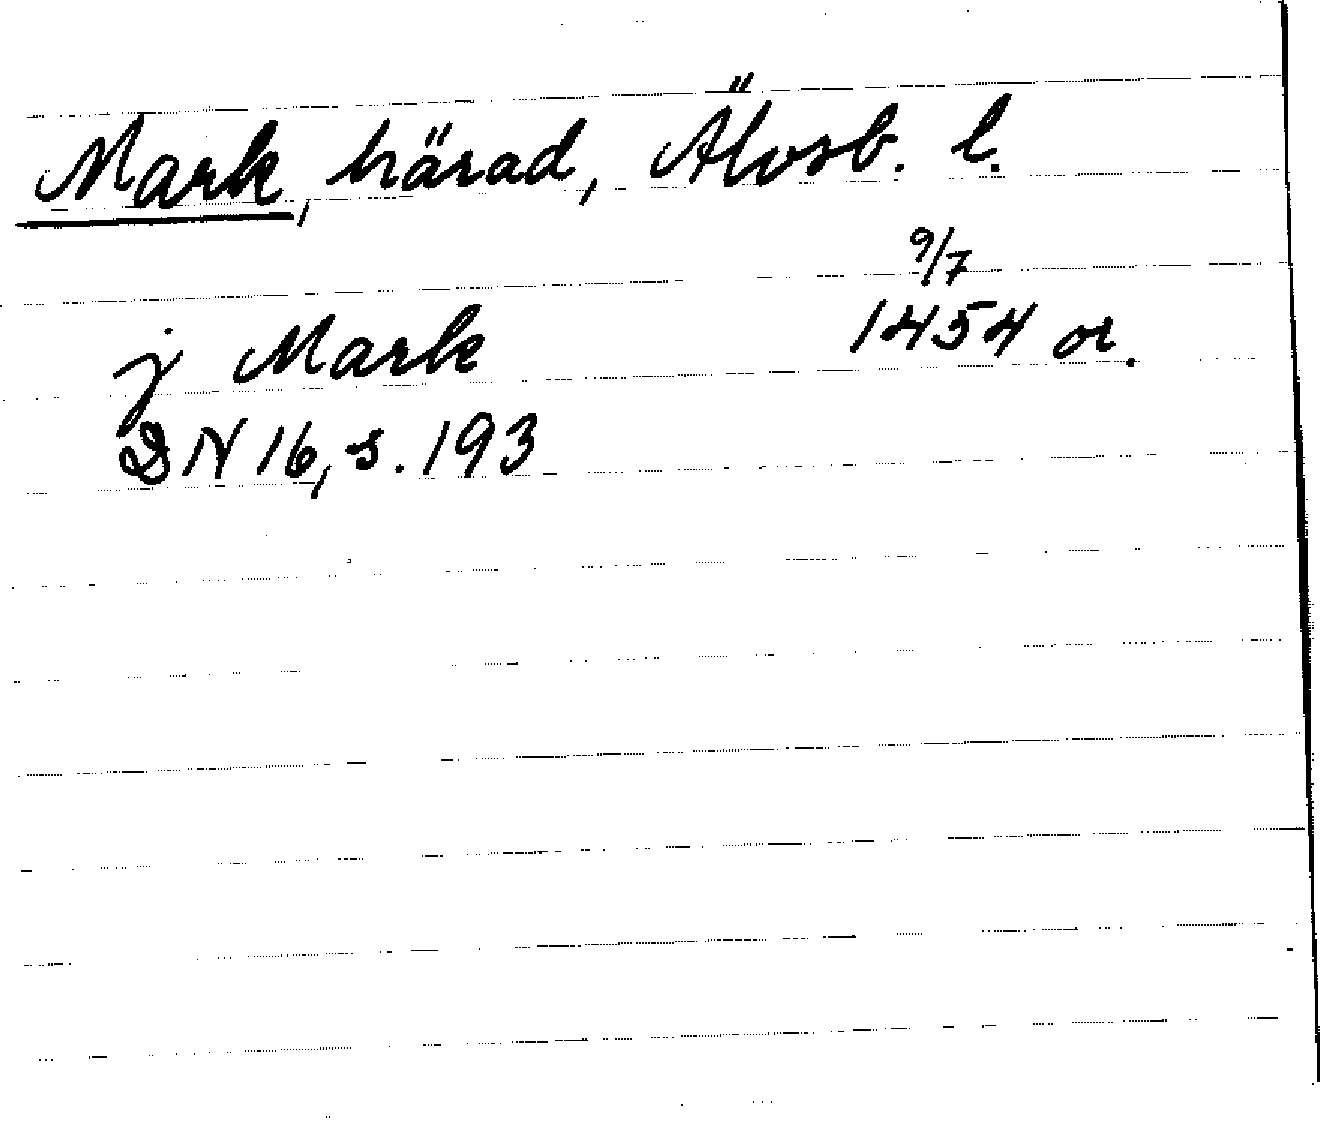 Mark, härad, Älvsb. l.
9/7
j Mark 1454 or.
DN 16, s. 193